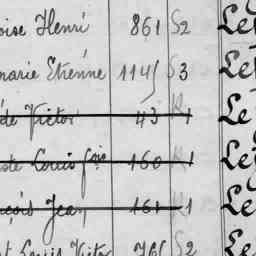 oise Henri 861 S2 Le
marie Etienne 1145 S3 Le
de Victor 43 R1 Le
Louis fois 160 R1 Le
nçois Jean 161 R1 Le
Louis Victor 761 S2 Le